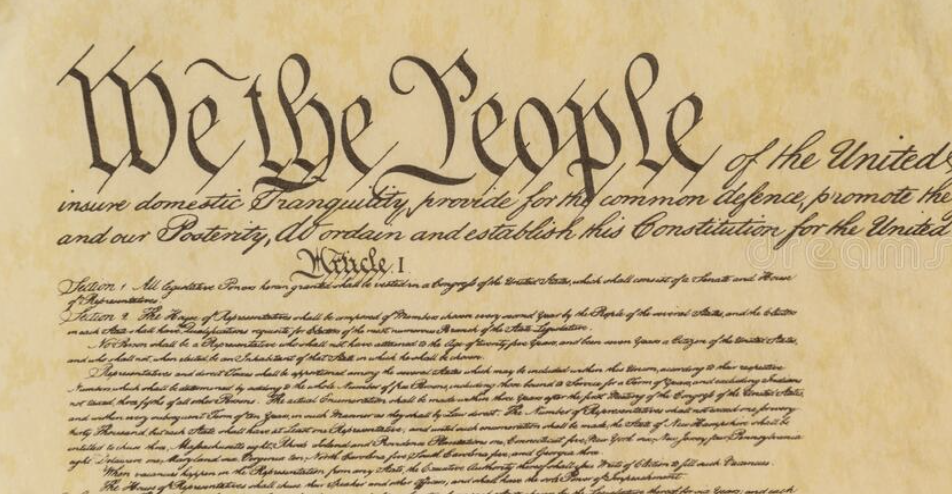 We the People of the United
insure domestic Tranquility, provide for the common defence, promote the
and our Posterity, do ordain and establish this Constitution for the United
dreams
Article. I.
Section 1 All legislative Powers herein granted shall be vested in a Congress of the United States, which shall consist of a Senate and House
of Representatives.
Section 2. The House of Representatives shall be composed of Members chosen every second Year by the People of the several States, and the Electors
in each State shall have Qualifications requisite for Electors of the most numerous Branch of the State Legislature.
No Person shall be a Representative who shall not have attained to the Age of twenty five Years, and been seven Years a Citizen of the United States,
and who shall not, when elected, be an Inhabitant of that State in which he shall be chosen.
Representatives and direct Taxes shall be apportioned among the several States which may be included within this Union, according to their respective
Numbers, which shall be determined by adding to the whole Number of free Persons, including those bound to Service for a Term of Years, and excluding Indians
not taxed, three fifths of all other Persons. The actual Enumeration shall be made within three Years after the first Meeting of the Congress of the United States,
and within every subsequent Term of ten Years, in such Manner as they shall by Law direct. The Number of Representatives shall not exceed one for every
thirty Thousand, but each State shall have at Least one Representative; and until such enumeration shall be made, the State of New Hampshire shall be
entitled to chuse three, Massachusetts eight, Rhode Island and Providence Plantations one, Connecticut five, New York six, New Jersey four, Pennsylvania
eight, Delaware one, Maryland six, Virginia ten, North Carolina five, South Carolina five, and Georgia three.
When vacancies happen in the Representation from any State, the Executive Authority thereof shall issue Writs of Election to fill such Vacancies.
The House of Representatives shall chuse their Speaker and other Officers; and shall have the sole Power of Impeachment.